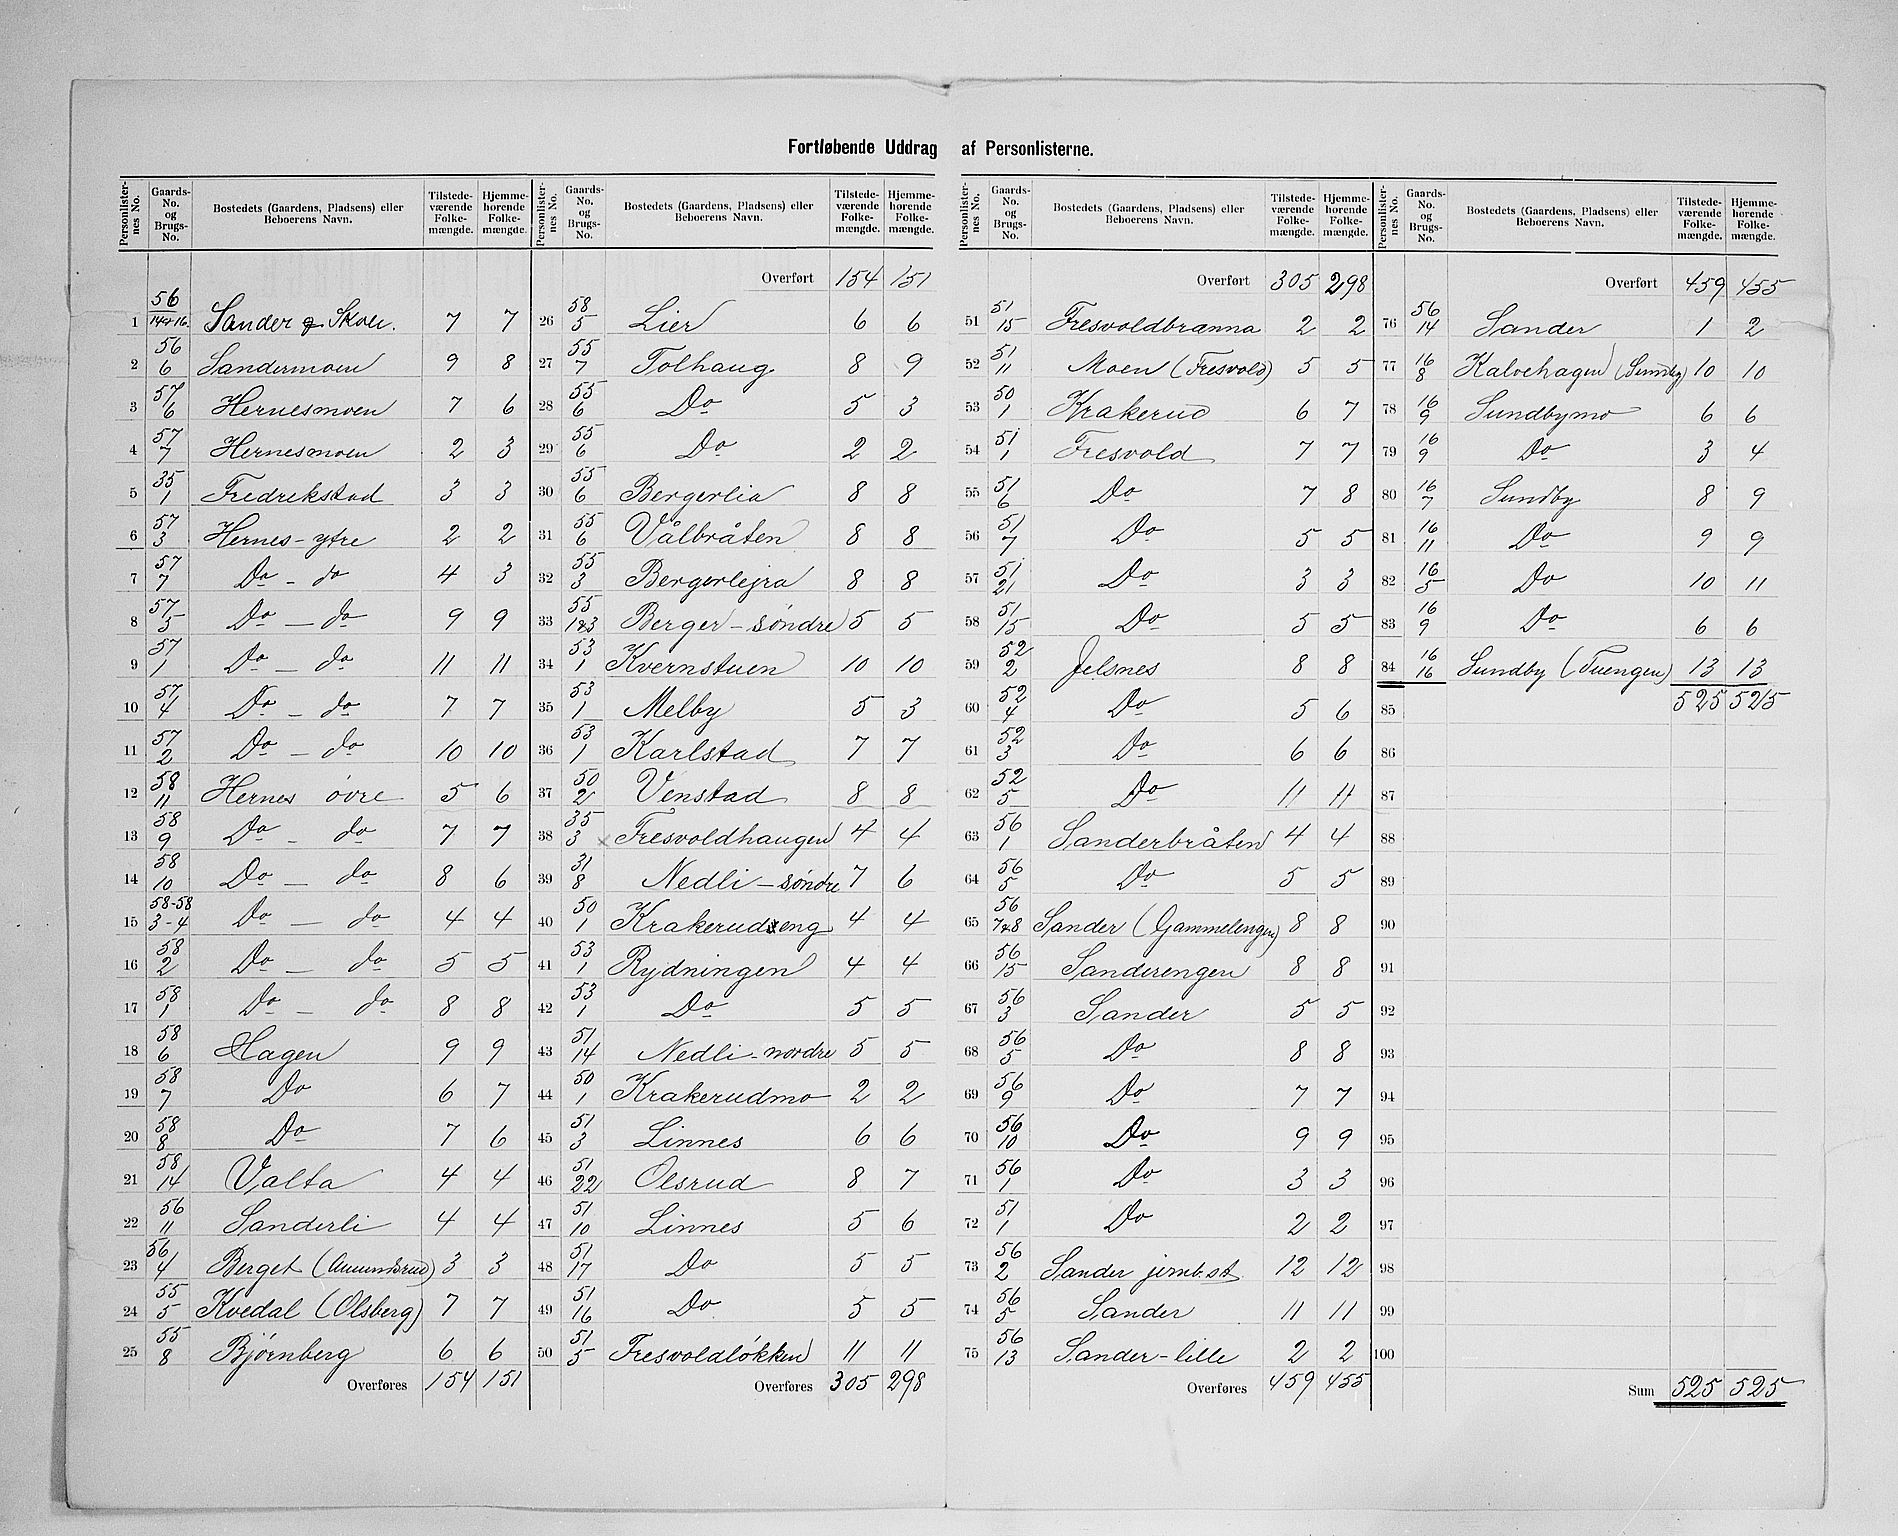 Fortløbende Uddrag af Personlisterne.
Personlister-nes No. Gaards-No. og Brugs-No. Bostedets (Gaardens, Pladsens) eller Beboerens Navn. Tilstede-værende Folke-mængde. Hjemme-hørende Folke-mængde.
1 56/14+16. Sander & Skole. 7 7
2 56/6 Sandermoen 9 8
3 57/6 Hernesmoen 7 6
4 57/7 Hernesmoen 2 3
5 35/1 Fredrekstad 3 3
6 57/3 Hernes-ytre 2 2
7 57/7 Do - do 4 3
8 57/5 Do - do 9 9
9 57/1 Do - do 11 11
10 57/4 Do - do 7 7
11 57/2 Do - do 10 10
12 58/11 Hernes øvre 5 6
13 58/9 Do - do 7 7
14 58/10 Do - do 8 6
15 58-58/3-4 Do - do 4 4
16 58/2 Do - do 5 5
17 58/1 Do - do 8 8
18 58/6 Hagen 9 9
19 58/7 Do 6 7
20 58/8 Do 7 6
21 58/14 Valta 4 4
22 56/11 Sanderli 4 4
23 56/4 Berget (Amundsrud) 3 3
24 55/5 Kvedal (Olsberg) 7 7
25 55/8 Bjørnberg 6 6
Overføres 154 151
Personlister-nes No. Gaards-No. og Brugs-No. Bostedets (Gaardens, Pladsens) eller Beboerens Navn. Tilstede-værende Folke-mængde. Hjemme-hørende Folke-mængde.
Overført 154 151
26 58/5 Lier 6 6
27 55/7 Tolhaug 8 9
28 55/6 Do 5 3
29 55/6 Do 2 2
30 55/6 Bergerlia 8 8
31 55/6 Vålbråten 8 8
32 55/3 Bergerlejra 8 8
33 55/1&3 Berger-søndre 5 5
34 53/1 Kvernstuen 10 10
35 53/1 Melby 5 3
36 53/1 Karlstad 7 7
37 50/2 Venstad 8 8
38 35/3 × Fresvoldhaugen 4 4
39 31/8 Nedli-søndre 7 6
40 50/1 Krakerudseng 4 4
41 53/1 Rydningen 4 4
42 53/1 Do 5 5
43 51/14 Nedli-nordre 5 5
44 50/1 Krakerudmo 2 2
45 51/3 Linnes 6 6
46 51/22 Olsrud 8 7
47 51/10 Linnes 5 6
48 51/17 Do 5 5
49 51/16 Do 5 5
50 51/5 Fresvoldløkken 11 11
Overføres 305 298
Personlister-nes No. Gaards-No. og Brugs-No. Bostedets (Gaardens, Pladsens) eller Beboerens Navn. Tilstede-værende Folke-mængde. Hjemme-hørende Folke-mængde.
Overført 305 298
51 51/15 Fresvoldbranna 2 2
52 51/11 Moen (Fresvold) 5 5
53 50/1 Krakerud 6 7
54 51/1 Fresvold 7 7
55 51/6 Do 7 8
56 51/7 Do 5 5
57 51/21 Do 3 3
58 51/15 Do 5 5
59 52/2 Jelsnes 8 8
60 52/4 Do 5 6
61 52/3 Do 6 6
62 52/5 Do 11 11
63 56/1 Sanderbråten 4 4
64 56/5 Do 5 5
65 56/7&8 Sander (Gammelengen) 8 8
66 56/15 Sanderengen 8 8
67 56/3 Sander 5 5
68 56/5 Do 8 8
69 56/9 Do 7 7
70 56/10 Do 9 9
71 56/1 Do 3 3
72 51/1 Do 2 2
73 56/2 Sander jernb.st. 12 12
74 56/5 Sander 11 11
75 56/13 Sander-lille 2 2
Overføres 459 455
Personlister-nes No. Gaards-No. og Brugs-No. Bostedets (Gaardens, Pladsens) eller Beboerens Navn. Tilstede-værende Folke-mængde. Hjemme-hørende Folke-mængde.
Overført 459 455
76 56/14 Sander 1 2
77 16/8 Kalvehagen (Sundby) 10 10
78 16/9 Sundbymo 6 6
79 16/9 Do 3 4
80 16/7 Sundby 8 9
81 16/11 Do 9 9
82 16/5 Do 10 11
83 16/9 Do 6 6
84 16/16 Sundby (Tuengen) 13 13
85 525 525
86
87
88
89
90
91
92
93
94
95
96
97
98
99
100
Sum 525 525